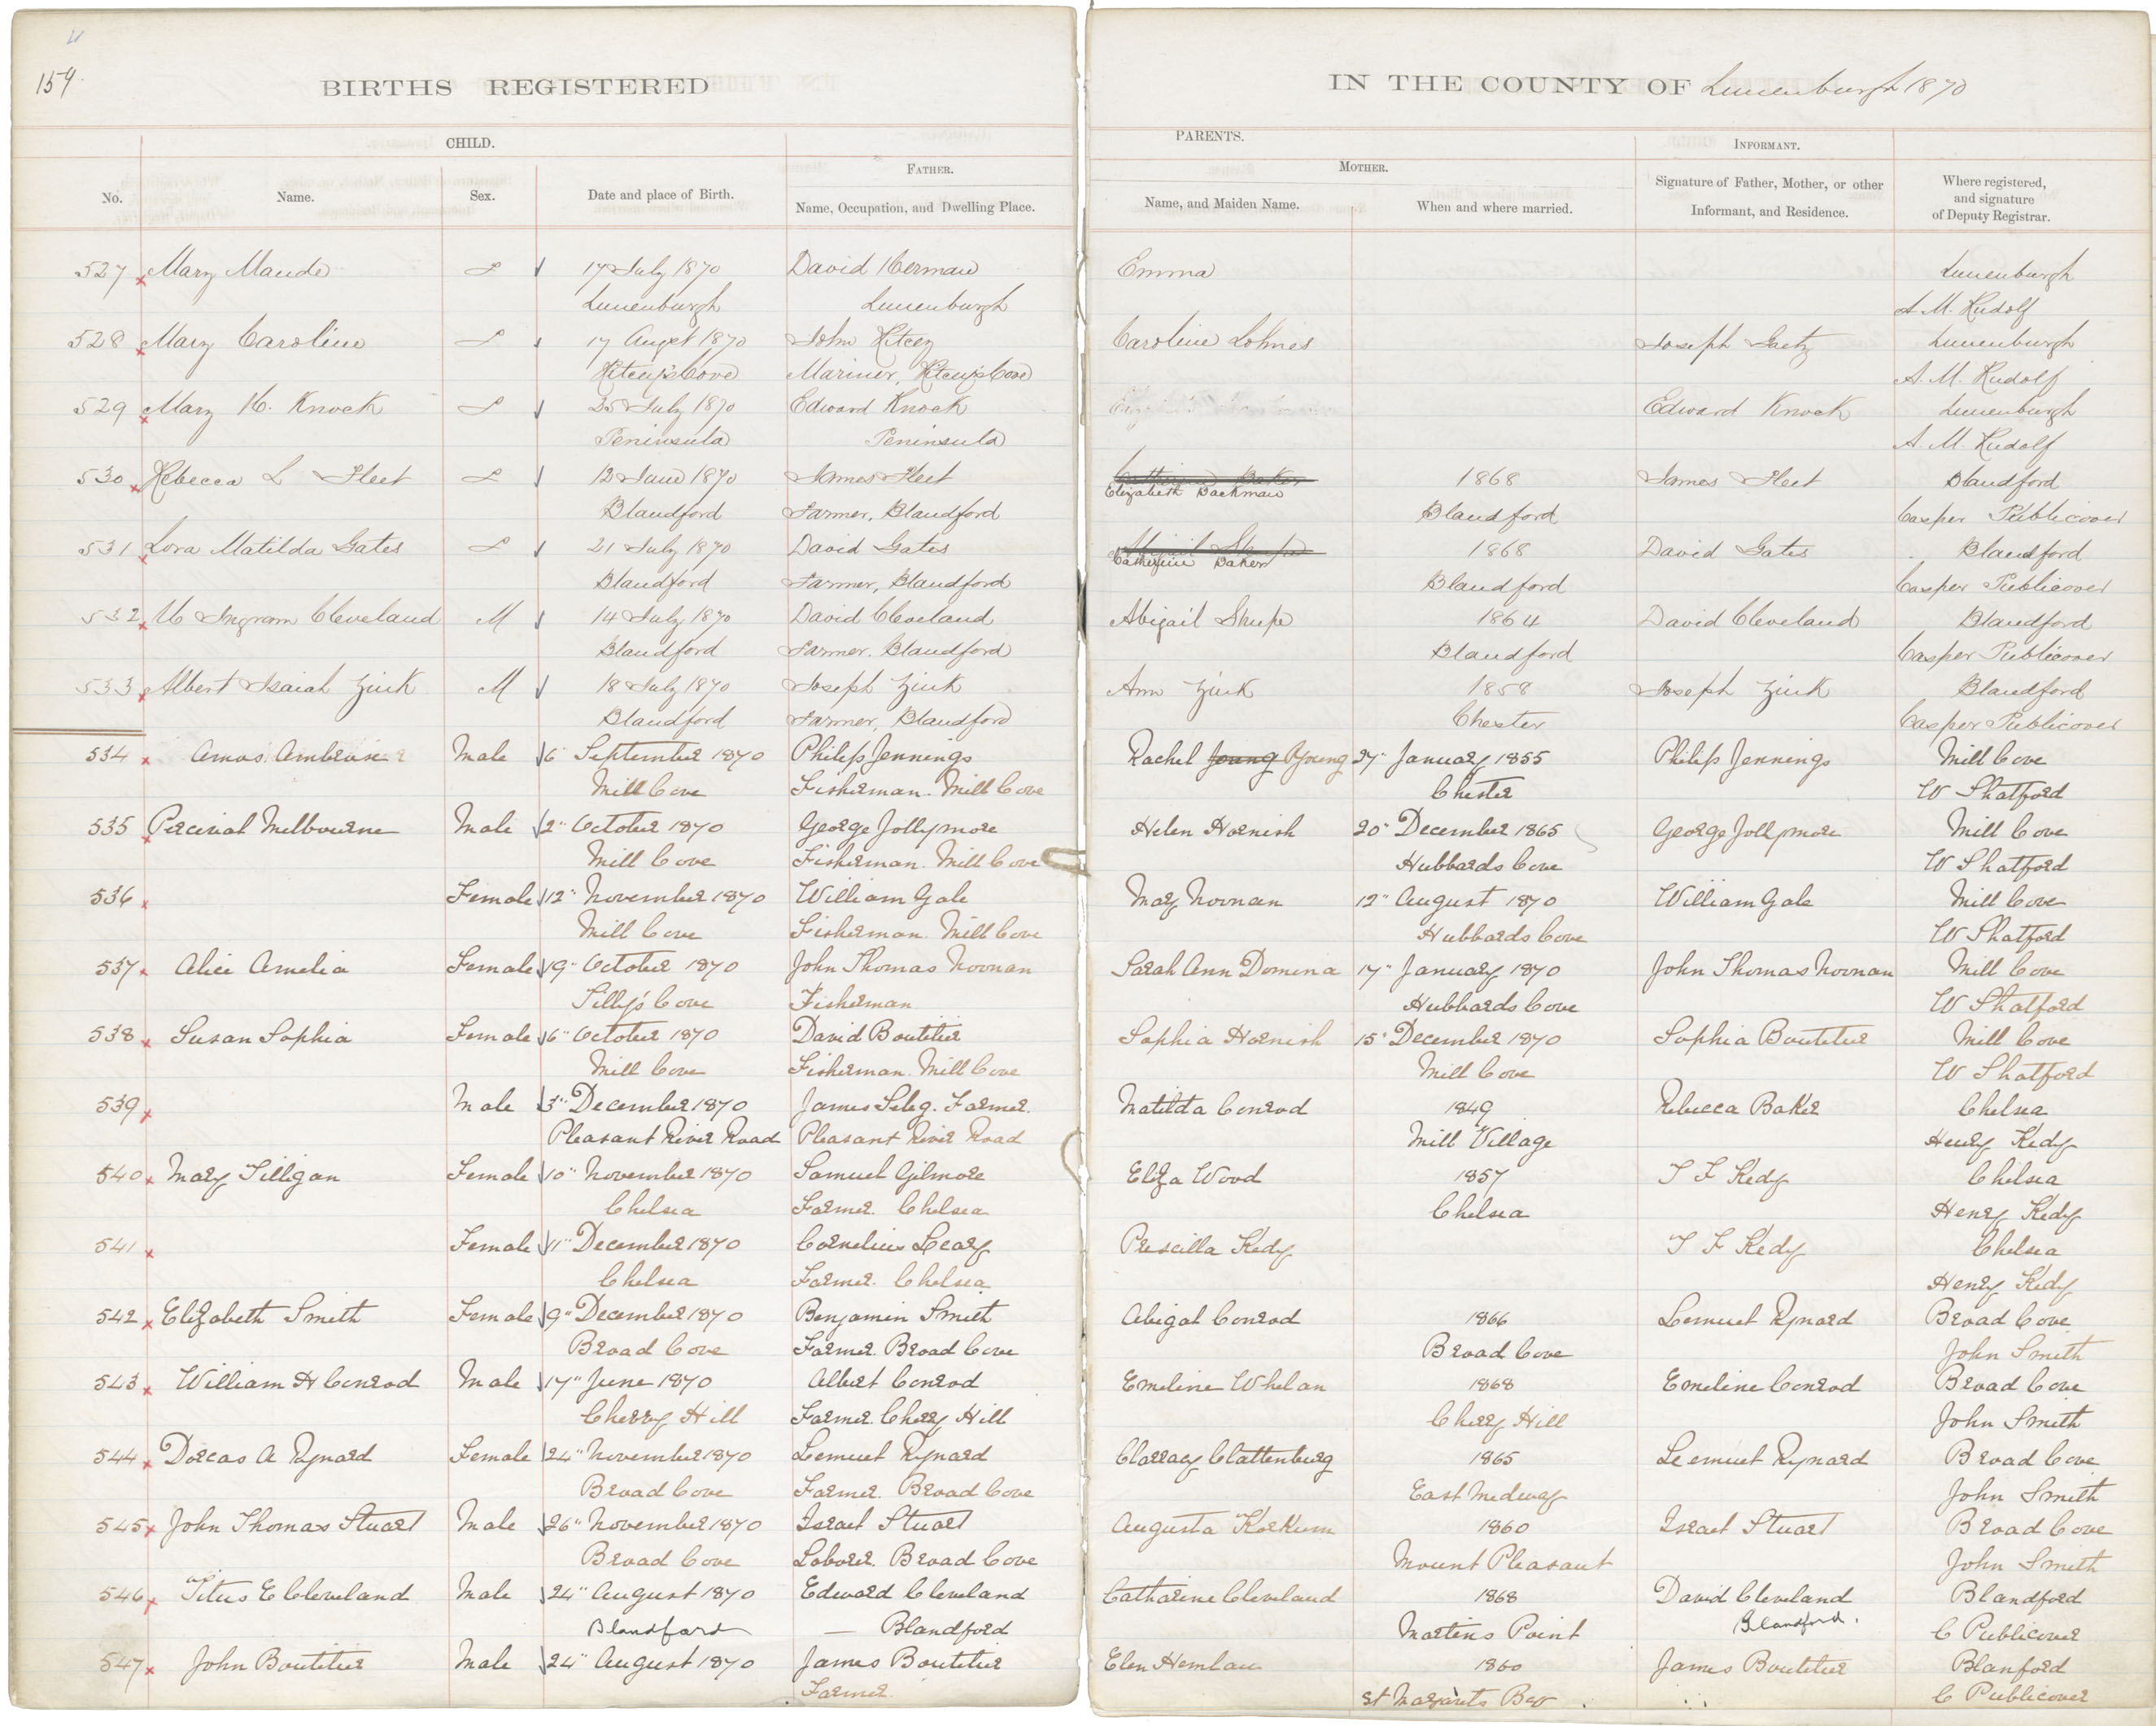 159.
BIRTHS REGISTERED
IN THE COUNTY OF Lunenburgh 1870
CHILD.
PARENTS.
FATHER.
MOTHER.
INFORMANT.
No.
Name.
Sex.
Date and place of Birth.
Name, Occupation, and Dwelling Place.
Name, and Maiden Name.
When and where married.
Signature of Father, Mother, or other
Informant, and Residence.
Where registered,
and signature
of Deputy Registrar.
527 Mary Maude f 17 July 1870 David Herman Emma Lunenburgh
Lunenburgh Lunenburgh A. M. Rudolf
528 Mary Caroline f 17 Augst 1870 John Ritcey Caroline Lohnes Joseph Gaetz Lunenburgh
Ritcey's Cove Mariner, Ritcey's Cove A. M. Rudolf
529 Mary H. Knock f 25 July 1870 Edward Knock Edward Knock Lunenburgh
Peninsula Peninsula A. M. Rudolf
530 Rebecca L Fleet f 12 June 1870 James Fleet Catherine Baker 1868 James Fleet Blandford
Elizabeth Backman
Blandford Farmer, Blandford Blandford Casper Publicover
531 Lora Matilda Gates f 21 July 1870 David Gates Abigail Shupe 1868 David Gates Blandford
Catherine Baker
Blandford Farmer, Blandford Blandford Casper Publicover
532 Ingram Cleveland M 14 July 1870 David Cleveland Abigail Shupe 1864 David Cleveland Blandford
Blandford Farmer, Blandford Blandford Casper Publicover
533 Albert Isaiah Zink M 18 July 1870 Joseph Zink Ann Zink 1858 Joseph Zink Blandford
Blandford Farmer, Blandford Chester Casper Publicover
534 Amos Ambrose Male 6" September 1870 Philip Jennings Rachel Young Young 27" January 1855 Philip Jennings Mill Cove
Mill Cove Fisherman. Mill Cove Chester W Shatford
535 Percival Melbourne Male 2" October 1870 George Jollymore Helen Hornish 20" December 1865 George Jollymore Mill Cove
Mill Cove Fisherman. Mill Cove Hubbards Cove W Shatford
536 Female 12" November 1870 William Gale May Noonan 12" August 1870 William Gale Mill Cove
Mill Cove Fisherman. Mill Cove Hubbards Cove W Shatford
537 Alice Amelia Female 19" October 1870 John Thomas Noonan Sarah Ann Domina 17" January 1870 John Thomas Noonan Mill Cove
Tilly's Cove Fisherman Hubbards Cove W Shatford
538 Susan Sophia Female 6" October 1870 David Boutilier Sophia Hornish 15" December 1870 Sophia Boutilier Mill Cove
Mill Cove Fisherman. Mill Cove Mill Cove W Shatford
539 Male 3" December 1870 James Seleg. Farmer. Matilda Conrod 1849 Rebecca Baker Chelsea
Pleasant River Road Pleasant River Road Mill Village Henry Kedy
540 Mary Tilligan Female 10" November 1870 Samuel Gilmore Eliza Wood 1857 T F Kedy Chelsea
Chelsea Farmer. Chelsea Chelsea Henry Kedy
541 Female 1" December 1870 Cornelius Leary Prescilla Kedy T F Kedy Chelsea
Chelsea Farmer. Chelsea. Henry Kedy
542 Elizabeth Smith Female 9" December 1870 Benjamin Smith Abigal Conrod 1866 Lemuel Rynard Broad Cove
Broad Cove Farmer. Broad Cove Broad Cove John Smith
543 William H Conrod Male 17" June 1870 Albert Conrod Emeline Whelan 1868 Emeline Conrod Broad Cove
Cherry Hill Farmer. Cherry Hill Cherry Hill John Smith
544 Dorcas A Rynard Female 24" November 1870 Lemuel Rynard Clarracy Clattenburg 1865 Lemuel Rynard Broad Cove
Broad Cove Farmer. Broad Cove East Medway John Smith
545 John Thomas Stuart Male 26" November 1870 Israel Stuart Augusta Korkum 1860 Israel Stuart Broad Cove
Broad Cove Laborer. Broad Cove Mount Pleasant John Smith
546 Titus E Cleveland Male 24" August 1870 Edward Cleveland Catharine Cleveland 1868 David Cleveland Blandford
Blandford — Blandford Martins Point Blandford. C Publicover
547 John Boutilier Male 24" August 1870 James Boutilier Elen Hemlau 1860 James Boutilier Blanford
Farmer. St Margarets Bay C Publicover